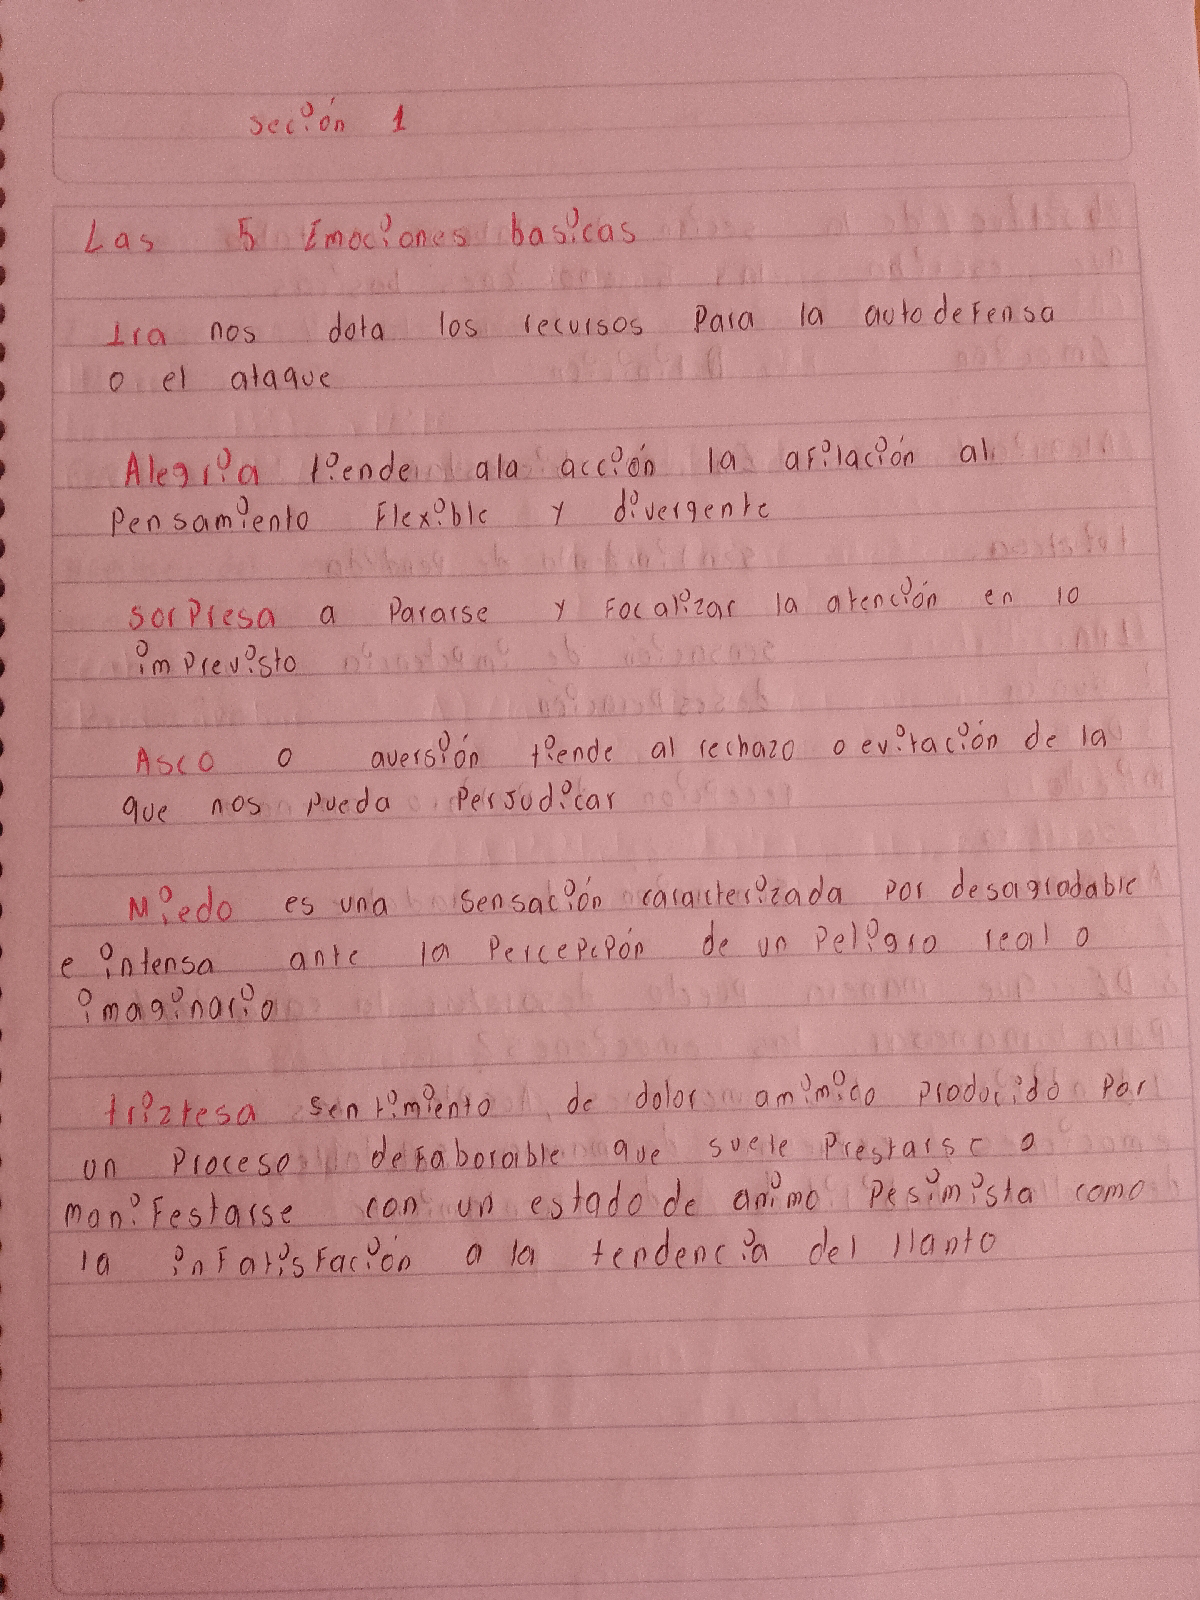 Sección 1
Las 5 Emociones basicas
Ira nos dota los recursos Para la autodefensa
o el ataque
Alegria tiende ala acción la afilación al
Pensamiento Flexible y divergente
Sorpresa a Pararse y Focalizar la atención en lo
imprevisto
Asco o aversión tiende al rechazo o evitación de la
que nos pueda Perjudicar
Miedo es una sensación caracterizada por desagradable
e intensa ante la Percepción de un Peligro real o
imaginario
triztesa sentimiento de dolor amimico Producido Por
un Proceso defaborable que suele Prestarse o
manifestarse con un estado de animo Pesimista como
la infatisfación a la tendencia del llanto